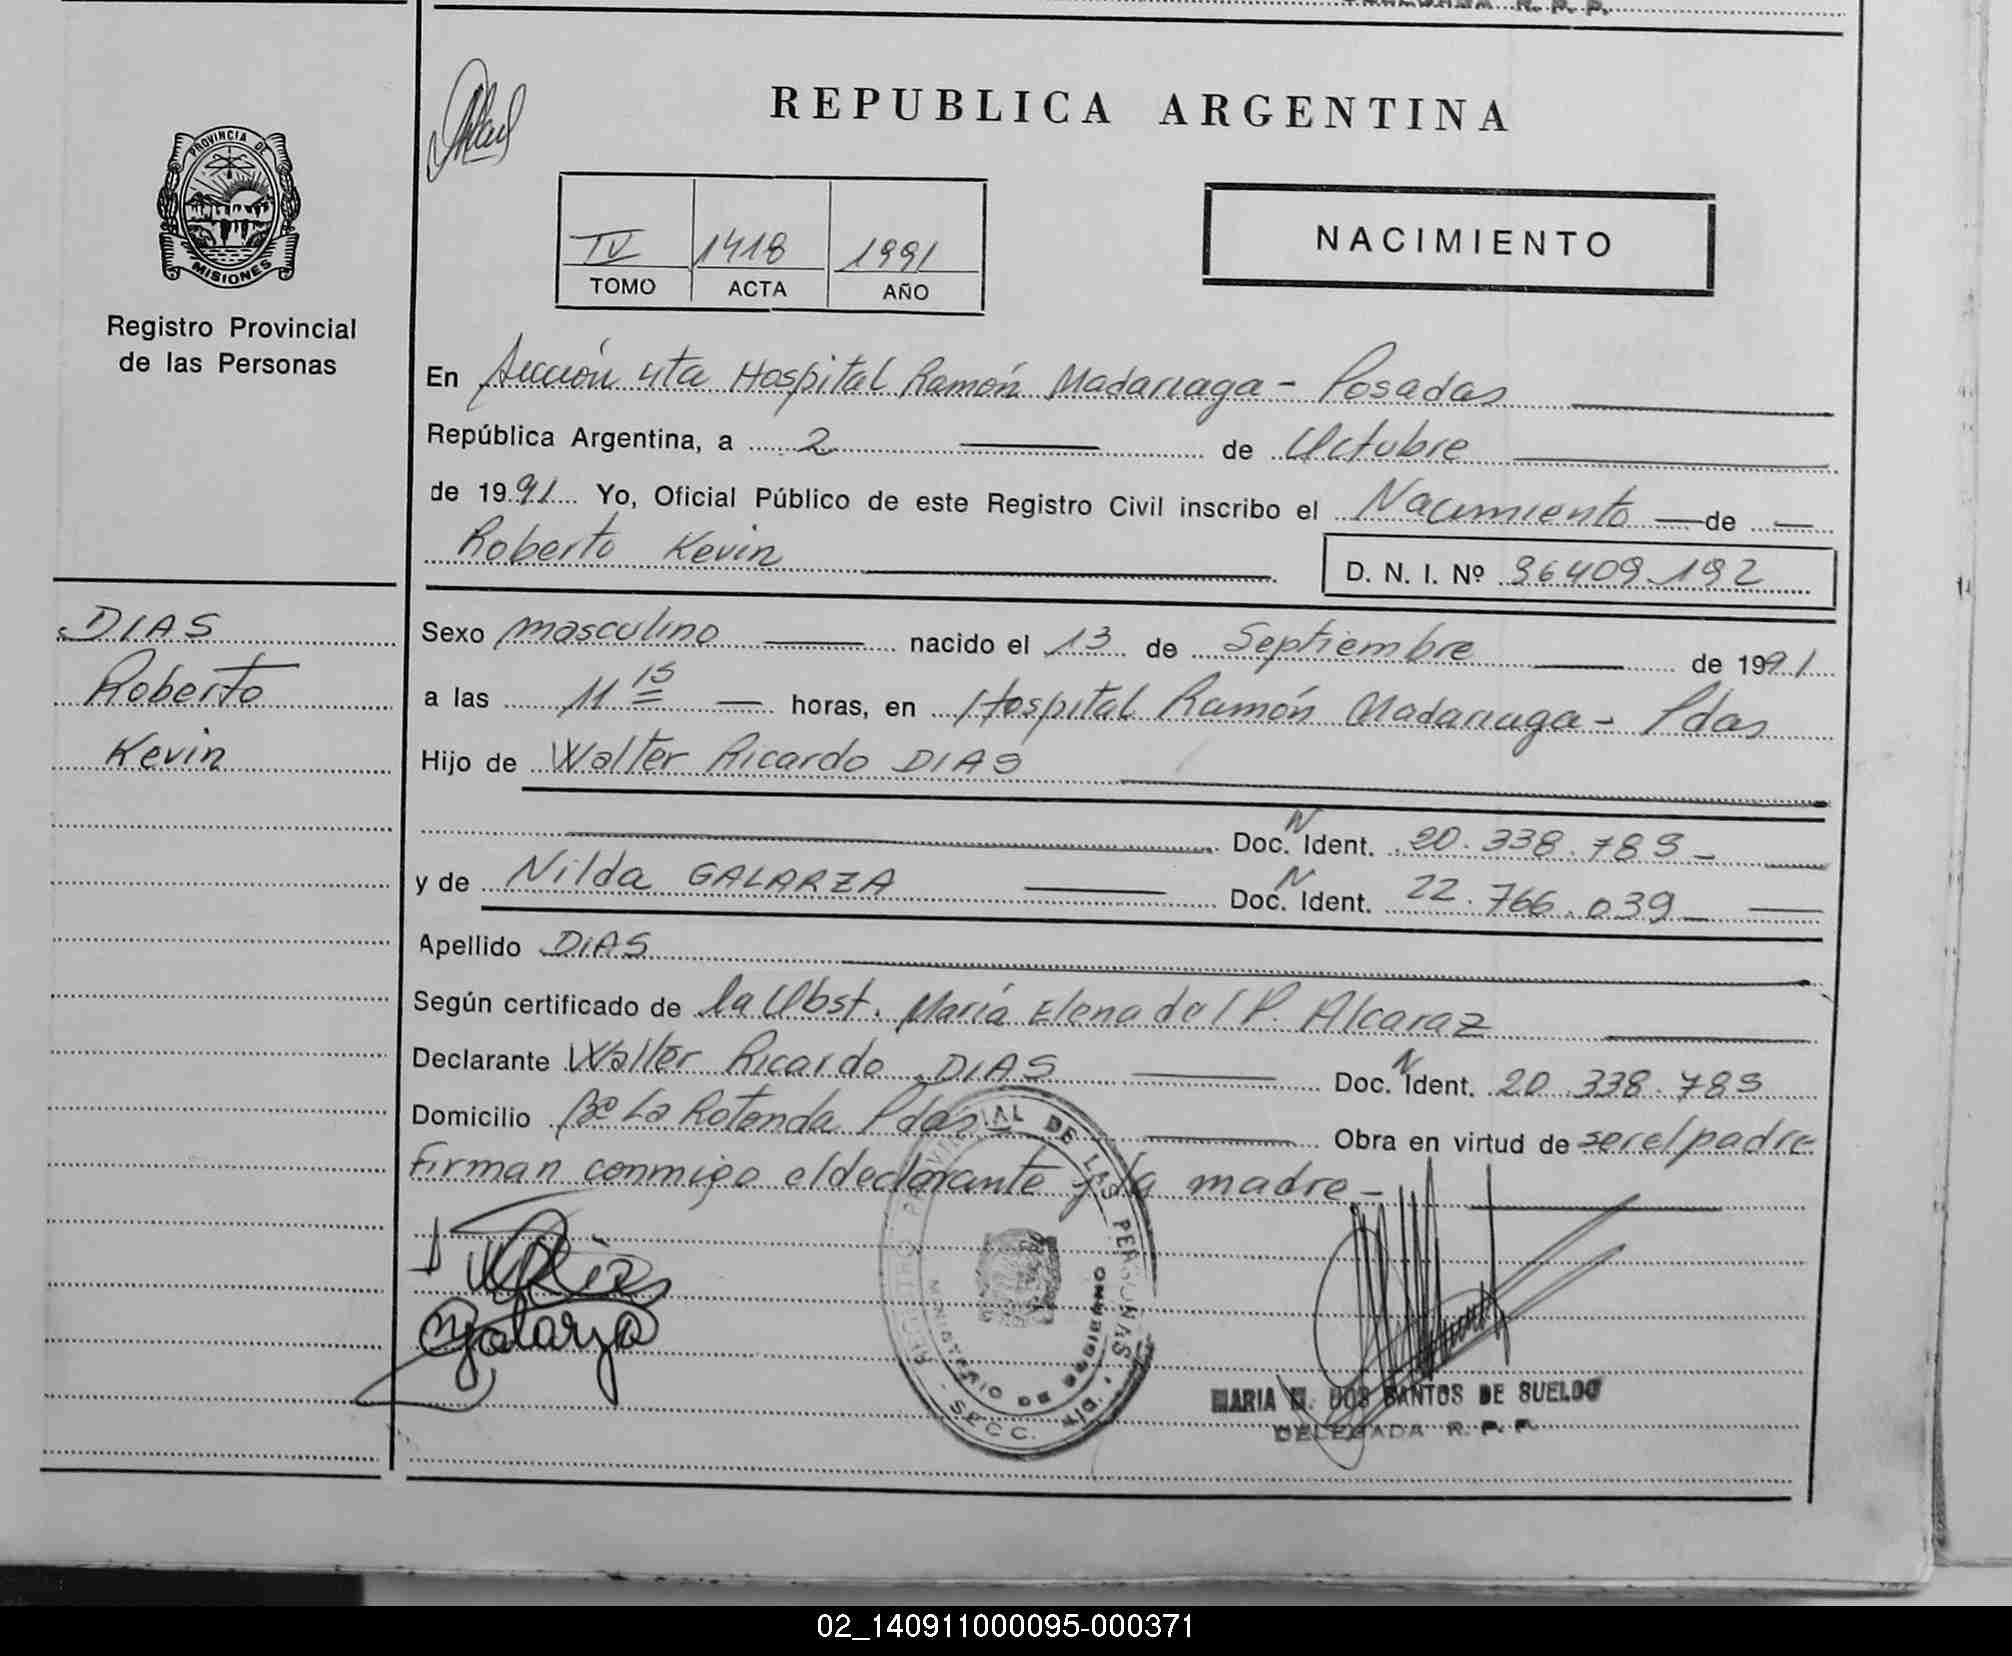 REPUBLICA ARGENTINA
PROVINCIA DE
MISIONES
Registro Provincial
de las Personas
IV 1418 1991
TOMO ACTA AÑO
NACIMIENTO
En Sección 4ta Hospital Ramón Madariaga - Posadas
República Argentina, a 2 de Octubre
de 1991 Yo, Oficial Público de este Registro Civil inscribo el Nacimiento de
Roberto Kevin
D. N. I. Nº 36409.192
DIAS
Roberto
Kevin
Sexo masculino nacido el 13 de Septiembre de 1991
a las 11 15 horas, en Hospital Ramón Madariaga - Pdas
Hijo de Walter Ricardo DIAS
Doc. N Ident. 20.338.789
y de Nilda GALARZA Doc. N Ident. 22.766.039
Apellido DIAS
Según certificado de la Obst. María Elena del P. Alcaraz
Declarante Walter Ricardo DIAS Doc. N Ident. 20.338.789
Domicilio Bº La Rotonda Pdas Obra en virtud de ser el padre
Firman conmigo el declarante y la madre -
Galarza
MARIA M. DOS SANTOS DE SUELDO
DELEGADA R. P. P.
02_140911000095-000371